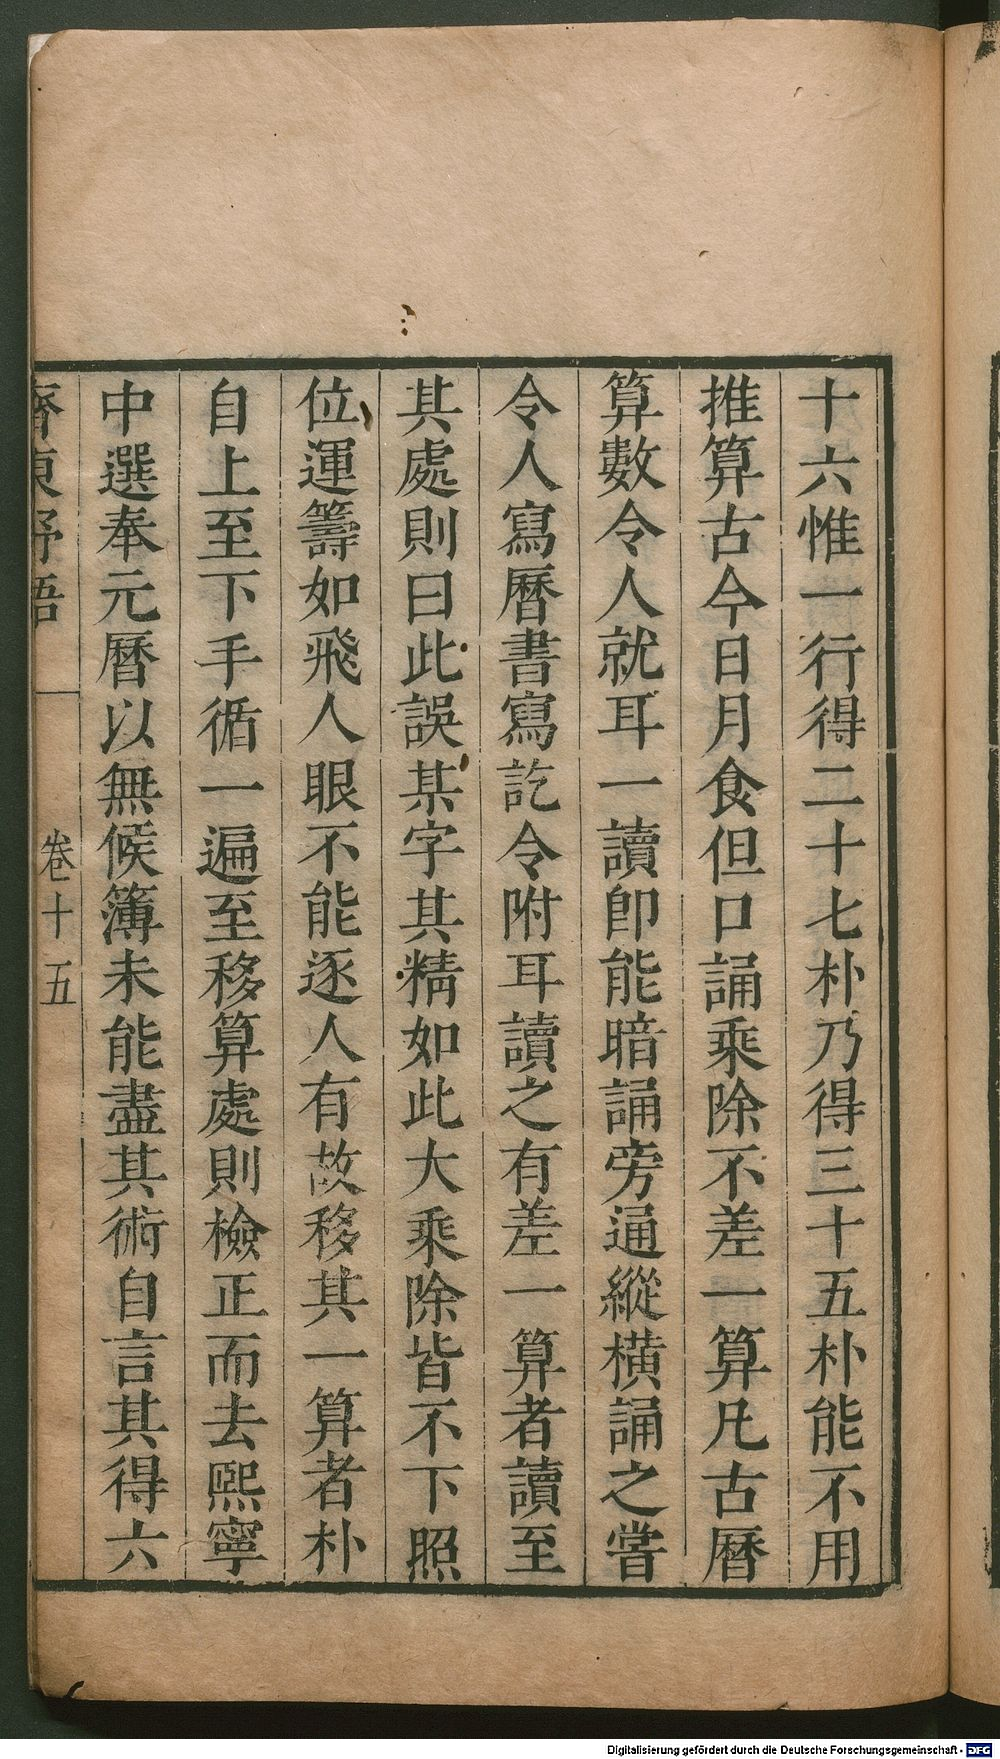 十六惟一行得二十七朴乃得三十五朴能不用
推算古今日月食但口誦乘除不差一算凡古曆
算數令人就耳一讀卽能暗誦旁通縱横誦之嘗
令人寫曆書寫訖令附耳讀之有差一算者讀至
其處則曰此誤某字其精如此大乘除皆不下照
位運籌如飛人眼不能逐人有故移其一算者朴
自上至下手循一遍至移算處則檢正而去熙寧
中選奉元曆以無候簿未能盡其術自言其得六
齊東野語
卷十五
Digitalisierung gefördert durch die Deutsche Forschungsgemeinschaft - DFG